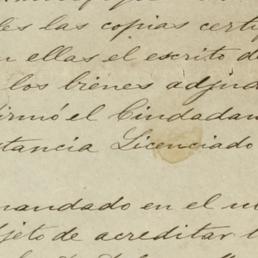 les las copias certi
n ellas el escrito de
los bienes adjud
irmó el Ciudadan
tancia Licenciado
mandado en el
jeto de acreditar